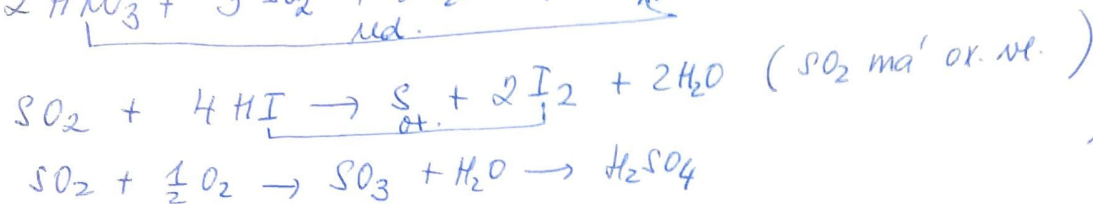 2 HNO₃ + 3 SO₂ +
red.
SO₂ + 4 HI → S + 2 I₂ + 2H₂O ( SO₂ má ox. vl. )
ox.
SO₂ + ½ O₂ → SO₃ + H₂O → H₂SO₄